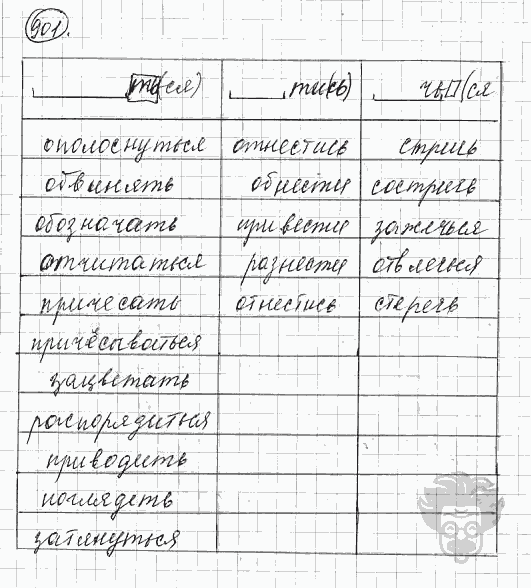 901.
ть(ся) ти(сь) чь(ся
ополоснуться отнестись стричь
обвинять обнести состричь
обозначать привести зажечься
отчитаться разнести отвлечься
причесать отнестись стеречь
причёсываться
зацветать
распорядиться
приводить
поглядеть
затянуться